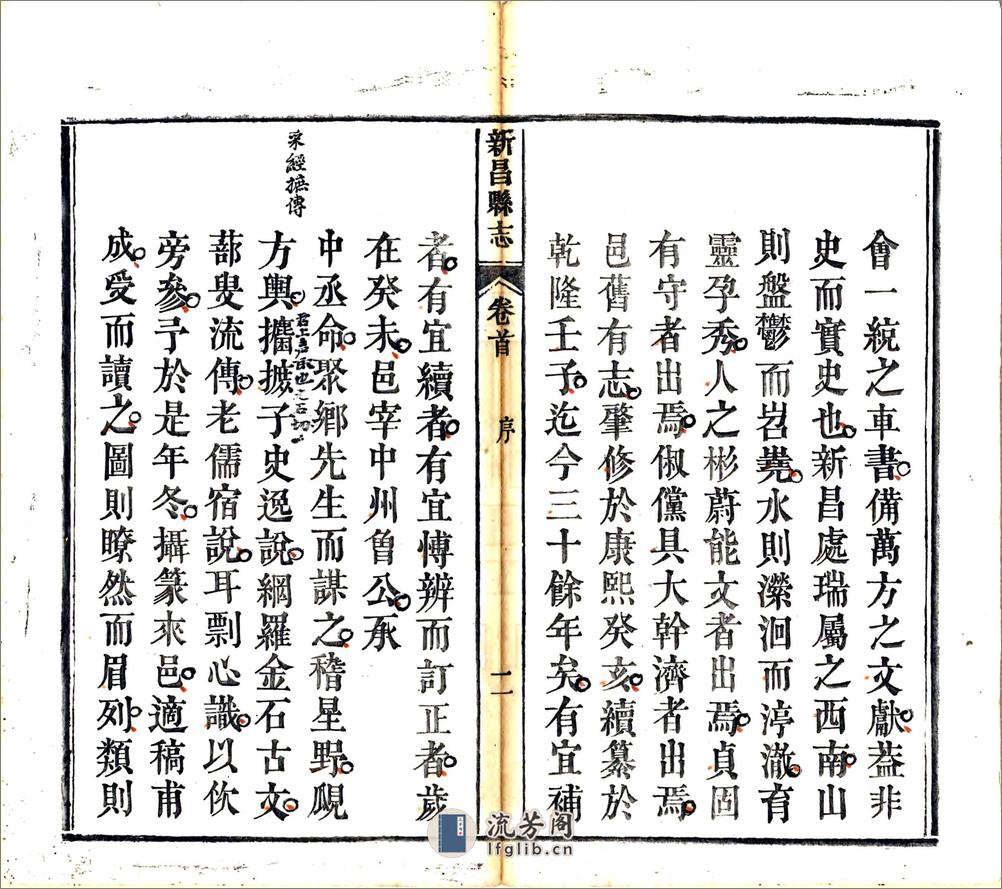 會一統之車書備萬方之文獻葢非
史而實史也新昌處瑞屬之西南山
則盤鬱而岧嶤水則濴洄而渟澈育
靈孕秀人之彬蔚能文者出焉貞固
有守者出焉俶儻具大幹濟者出焉
邑舊有志肇修於康熙癸亥續纂於
乾隆壬子迄今三十餘年矣有宜補
新昌縣志
卷首
序
二
者有宜續者有宜愽辨而訂正者歲
在癸未邑宰中州曾公承
中丞命聚鄉先生而謀之稽星野覘
采經摭傳
方輿攟摭子史逸說綱羅金石古文
蔀叟流傳老儒宿說耳剽心識以佽
旁參予於是年冬攝篆來邑適稿甫
成受而讀之圖則瞭然而眉列類則
流芳阁
lfglib.cn